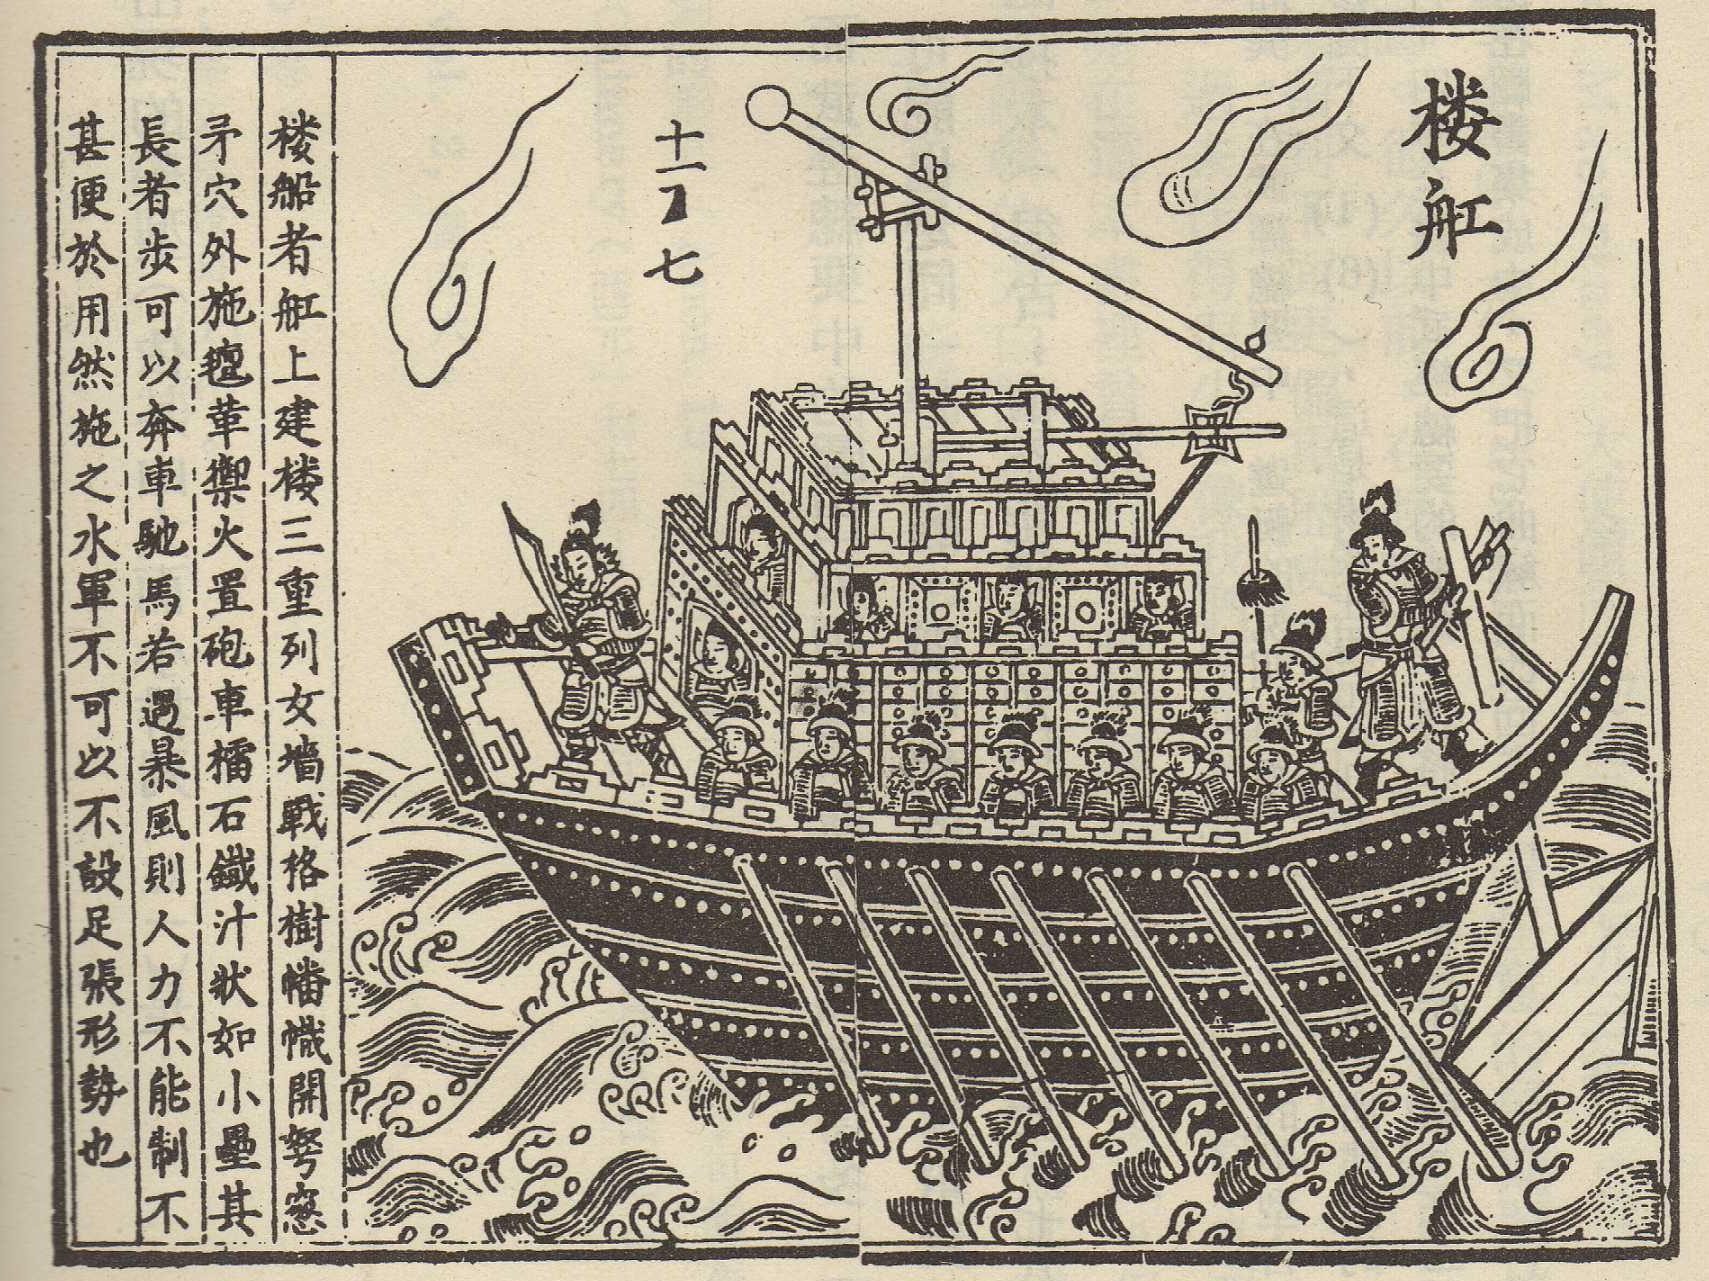 楼舡
十一
七
楼船者舡上建楼三重列女墙戰格樹幡幟開弩窓
矛穴外施氊革禦火置砲車檑石鐵汁狀如小壘其
長者步可以奔車馳馬若遇暴風則人力不能制不
甚便於用然施之水軍不可以不設足張形勢也